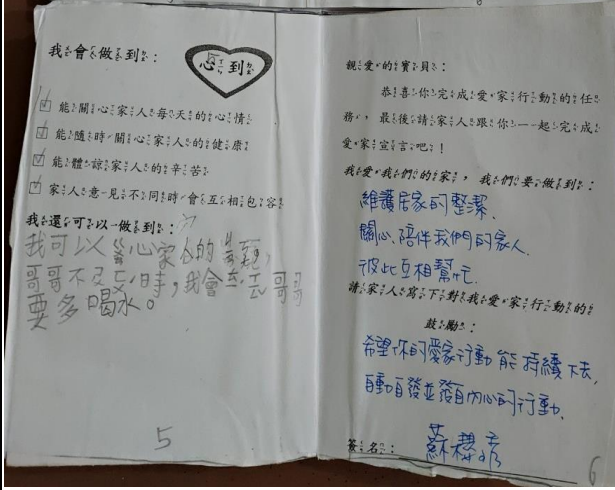 我會做到：
心到
能關心家人每天的心情
能隨時關心家人的健康
能體諒家人的辛苦
家人意見不同時會互相包容
我還可以做到：
我可以 心家人的
哥哥不及 時，我會 哥哥
要多喝水。
5
親愛的寶貝：
恭喜你完成愛家行動的任
務，最後請家人跟你一起完成
愛家宣言吧！
我愛我們的家，我們要做到：
維護居家的整潔.
關心、陪伴我們的家人.
彼此互相幫忙.
請家人寫下對我愛家行動的
鼓勵：
希望你的愛家行動能持續下去,
自動自發並發自內心的行動.
簽名：
6